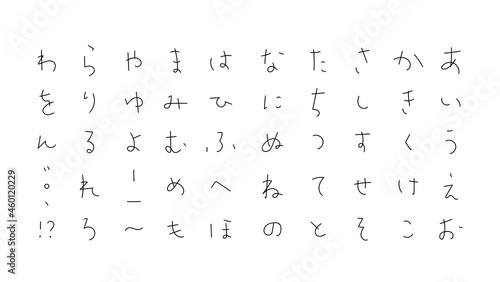 あいうえお
かきくけこ
さしすせそ
たちつてと
なにぬねの
はひふへほ
まみむめも
やゆよ|ー〜
らりるれろ
わをん゛。、!?
Adobe Stock | #460120229